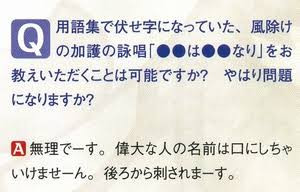 Q 用語集で伏せ字になっていた、風除け
の加護の詠唱「●●は●●なり」をお
教えいただくことは可能ですか? やはり問題
になりますか?
A 無理でーす。偉大な人の名前は口にしちゃ
いけませーん。後ろから刺されまーす。